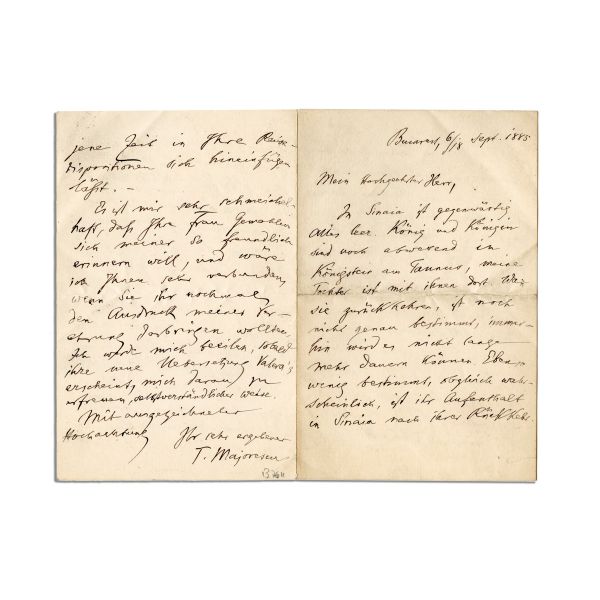 Bucarest, 6/18 Sept. 1885
Mein Hochgeehrter Herr,
In Sinaia ist gegenwärtig
Alles leer. König und Königin
sind noch abwesend in
Königstein am Taunus, meine
Tochter ist mit ihnen dort. Wan
sie zurückkehren, ist noch
nicht genau bestimmt, immer-
hin wird es nicht lange
mehr dauern können. Eben
wenig bestimmt, obgleich wahr-
scheinlich, ist ihr Aufenthalt
in Sinaia nach ihrer Rückkehr.
jene Zeit in Ihre Reise-
dispositionen sich hineinfügen
läßt. —
Es ist mir sehr schmeichel-
haft, daß Ihre Frau Gemahlin
sich meiner so freundlich
erinnern will, und wäre
ich Ihnen sehr verbunden,
wenn Sie ihr nochmals
den Ausdruck meiner Ver-
ehrung darbringen wollten.
Ich werde mich beeilen, sobald
ihre neue Uebersetzung
erscheint, mich daran zu
erfreuen, selbstverständlicher weise.
Mit ausgezeichneter
Hochachtung
Ihr sehr ergebener
T. Majorescu